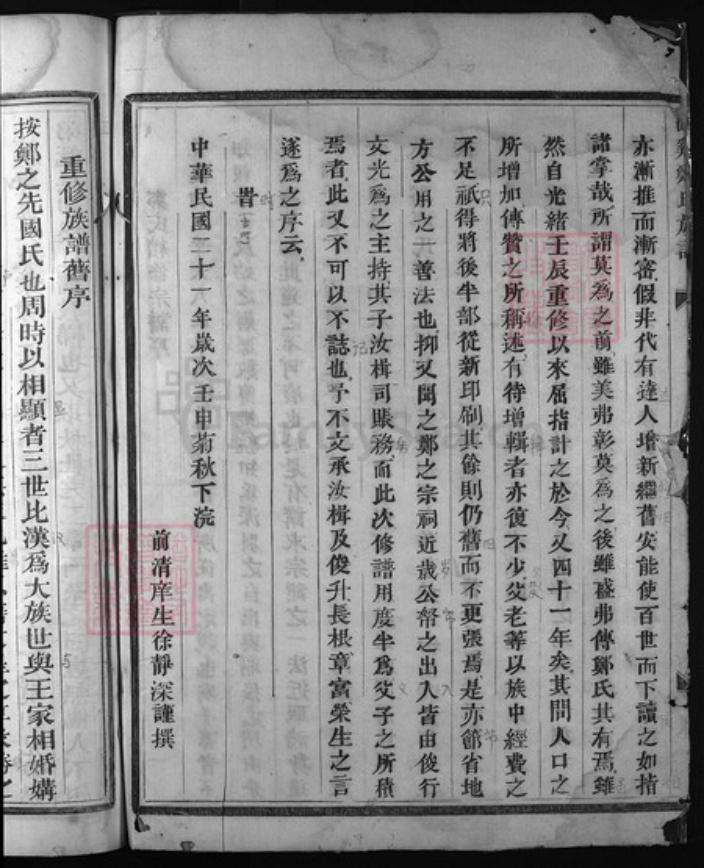 亦漸推而漸密假非代有達人增新繼舊安能使百世而下讀之如指
諸掌哉所謂莫為之前雖美弗彰莫為之後雖盛弗傳鄭氏其有焉雖
然自光緒壬辰重修以來屈指計之於今又四十一年矣其間人口之
所增加傳贊之所稱述有待增輯者亦復不少父老等以族中經費之
不足祇得將後半部從新印刷其餘則仍舊而不更張焉是亦節省地
方公用之一善法也抑又聞之鄭之宗祠近歲公帑之出入皆由俊行
文光為之主持其子汝楫司賬務而此次修譜用度半為父子之所積
焉者此又不可以不誌也予不文承汝楫及俊升長根章富榮生之言
遂為之序云
旹
中華民國二十八年歲次壬申菊秋下浣
前清庠生徐靜深謹撰
重修族譜舊序
按鄭之先國氏也周時以相顯者三世比漢為大族世與王家相婚媾